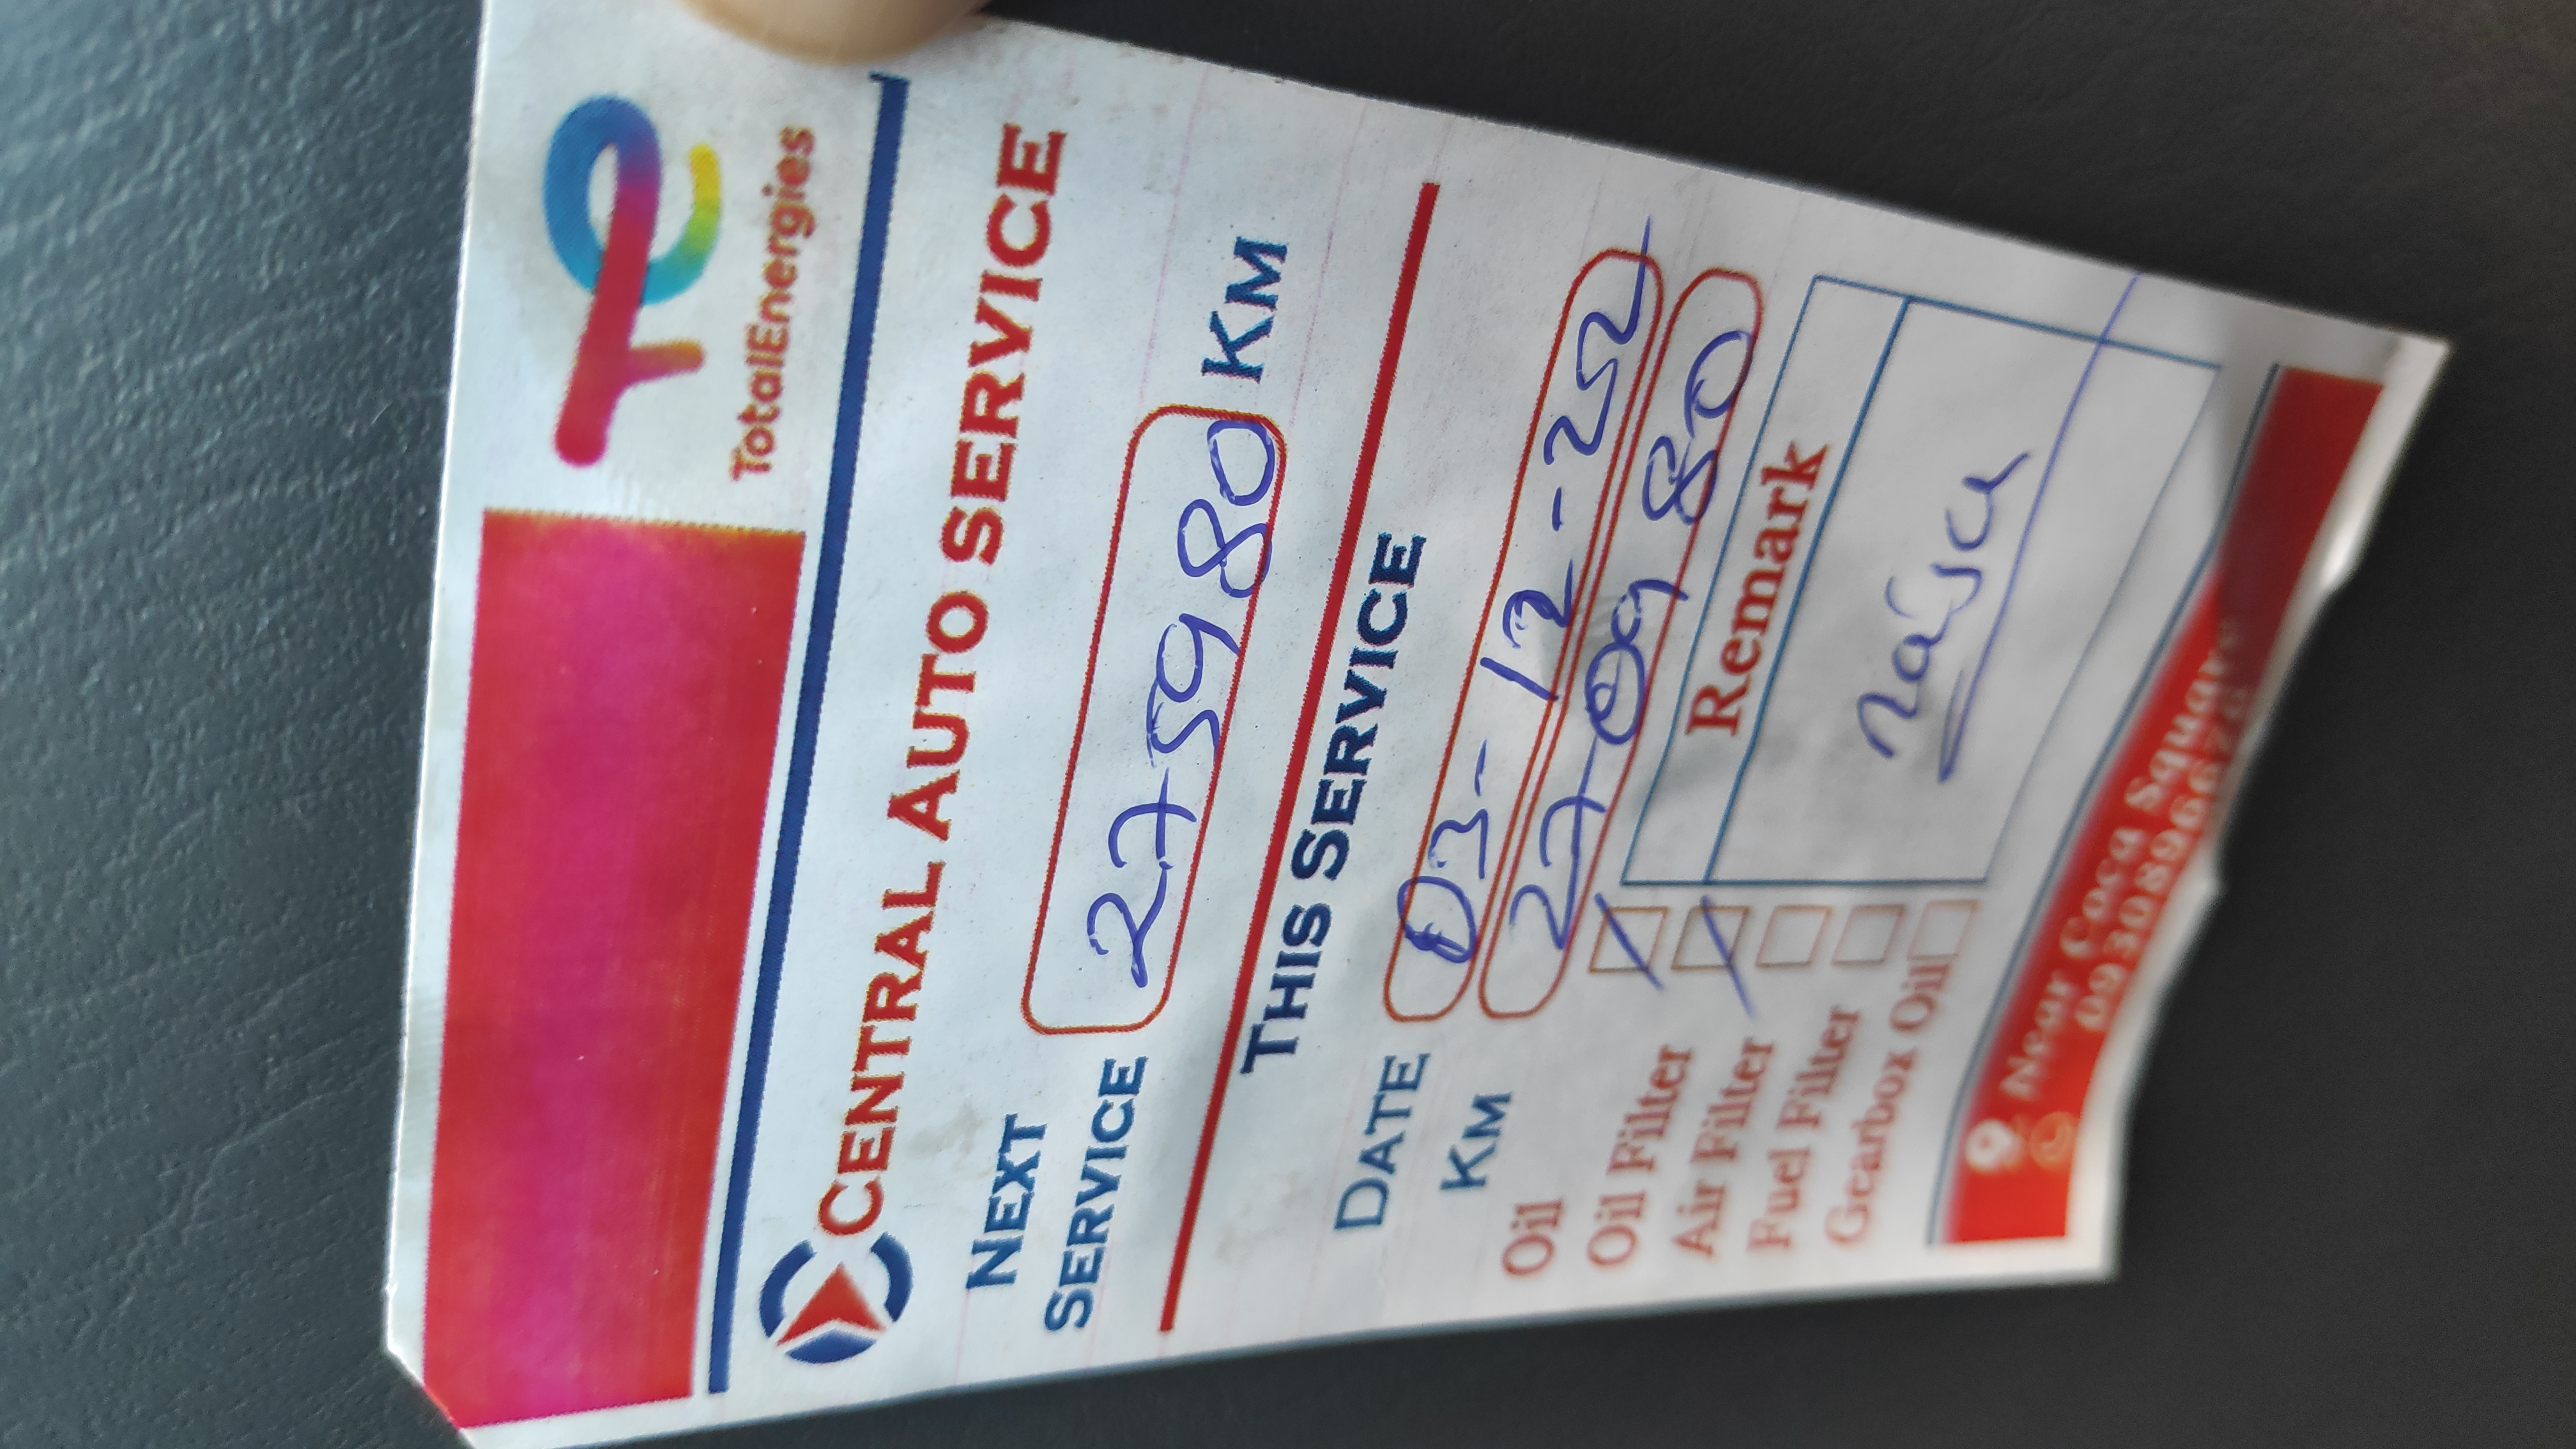 TotalEnergies
CENTRAL AUTO SERVICE
NEXT SERVICE 275980 KM
THIS SERVICE
DATE 03-12-22
KM 270980
Oil
Oil Filter
Air Filter
Fuel Filter
Gearbox Oil
Remark
Near Coca Square